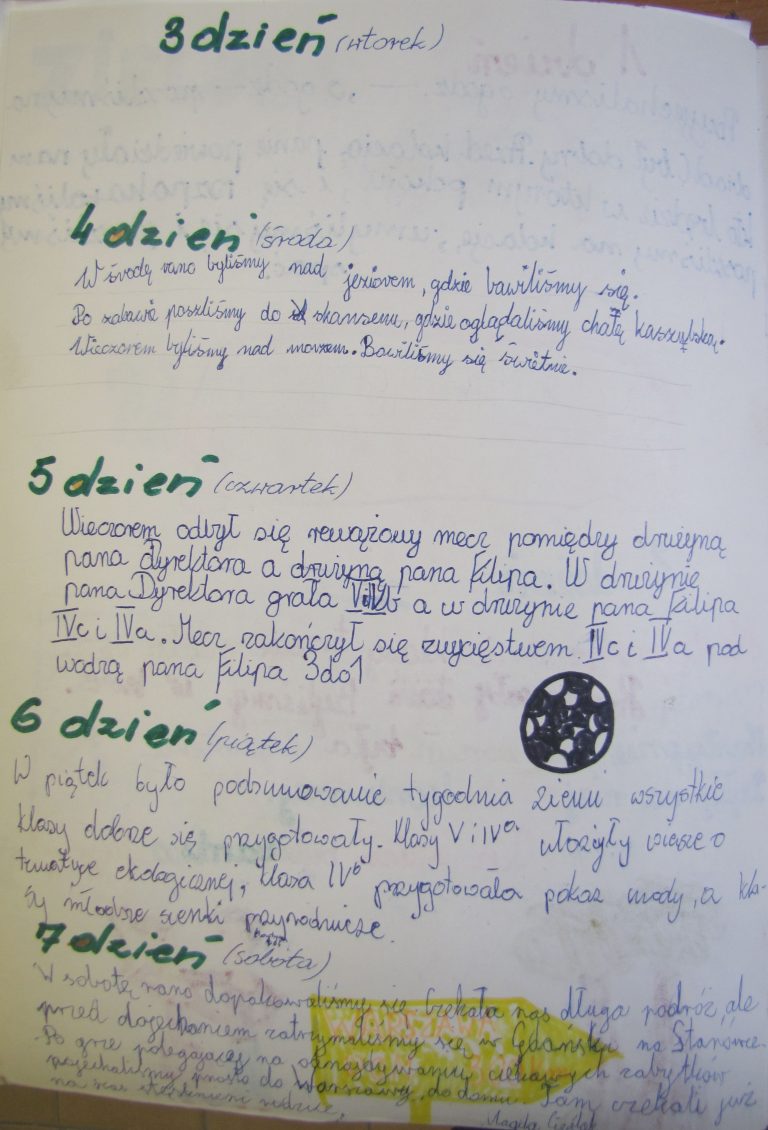 3 dzień (wtorek)
4 dzień (środa)
W środę rano byliśmy nad jeziorem, gdzie bawiliśmy się.
Po zabawie poszliśmy do skansenu, gdzie oglądaliśmy chatę kaszubską.
Wieczorem byliśmy nad morzem. Bawiliśmy się świetnie.
5 dzień (czwartek)
Wieczorem odbył się mecz pomiędzy drużyną
pana Dyrektora a drużyną pana Filipa. W drużynie
pana Dyrektora grała a w drużynie pana Filipa
IVc i IVa. Mecz zakończył się zwycięstwem IVc i IVa pod
wodzą pana Filipa 3do1
6 dzień (piątek)
W piątek było podsumowanie tygodnia Ziemi wszystkie
klasy dobrze się przygotowały. Klasy V i IVa ułożyły wiersze o
tematyce ekologicznej, klasa IVb przygotowała pokaz mody, a kla-
sy młodsze scenki przyrodnicze.
7 dzień (sobota)
W sobotę rano dopakowaliśmy się Czekała nas długa podróż, ale
przed dojechaniem zatrzymaliśmy się w Gdańsku na Starówce.
Po grze polegającej na odnajdywaniu ciekawych zabytków
pojechaliśmy prosto do Warszawy, do domu. Tam czekali już
na nas rodzice.
WARSZAWA
Magda